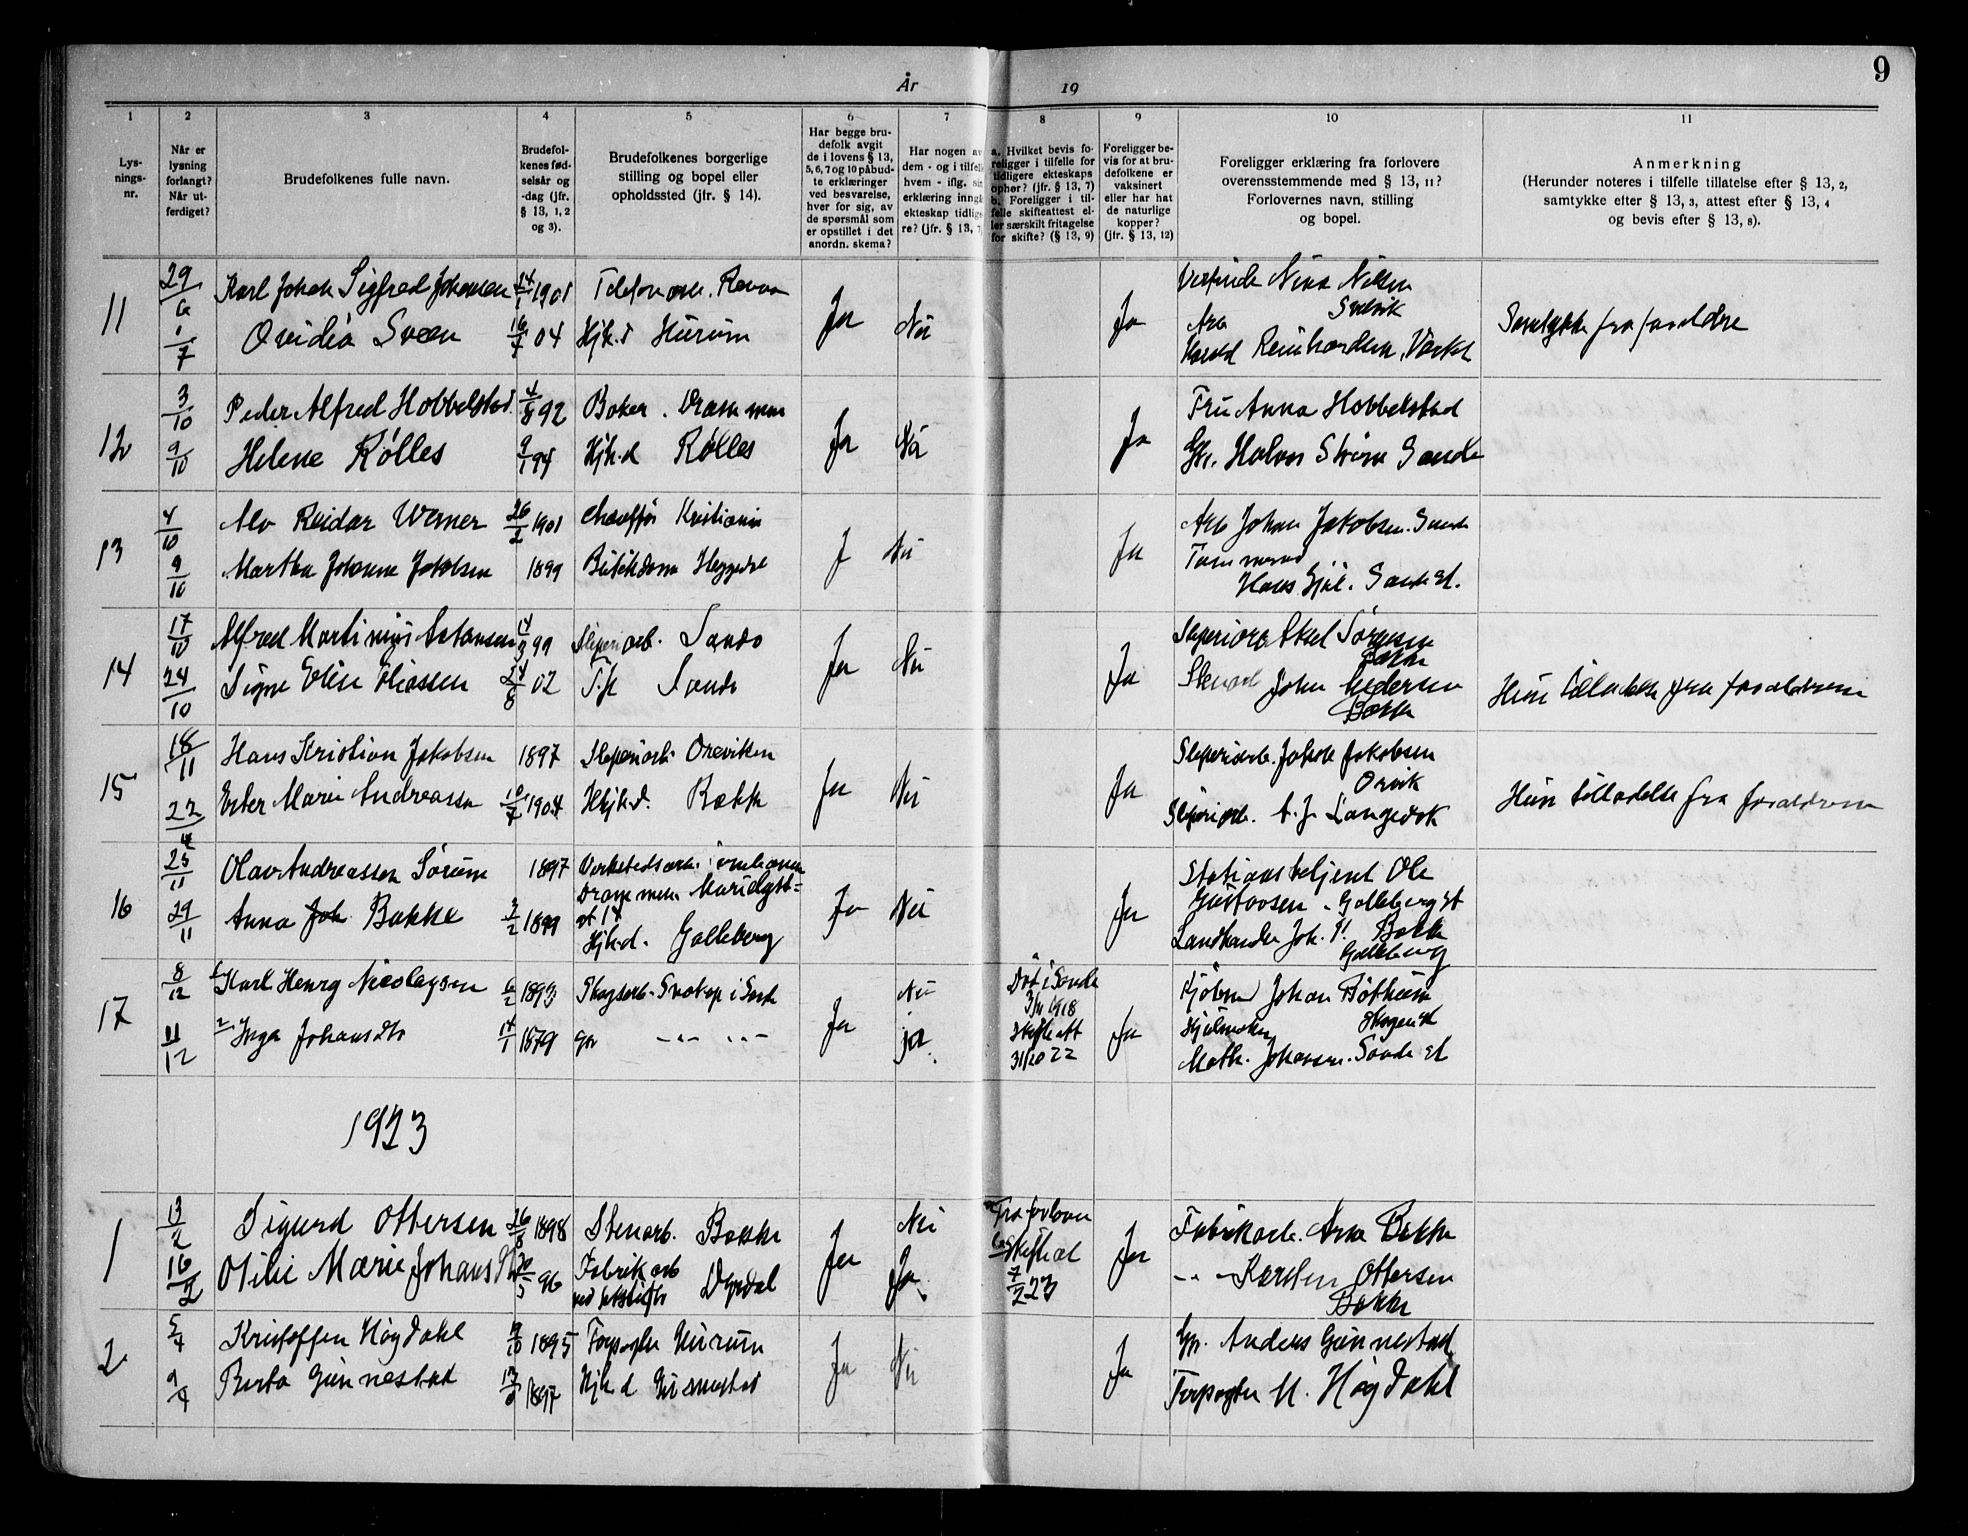 9
År 19
1 2 3 4 5 6 7 8 9 10 11
Lys-
nings-
nr.
Når er
lysning
forlangt?
Når ut-
ferdiget?
Brudefolkenes fulle navn.
Brudefol-
kenes fød-
selsår og
-dag (jfr.
§ 13, 1, 2
og 3).
Brudefolkenes borgerlige
stilling og bopel eller
opholdssted (jfr. § 14).
Har begge bru-
defolk avgit
de i lovens § 13,
5, 6, 7 og 10 påbud-
te erklæringer
ved besvarelse,
hver for sig, av
de spørsmål som
er opstillet i det
anordn. skema?
Har nogen av
dem - og i tilfelle
hvem - iflg. sin
erklæring inngå
ekteskap tidlige-
re? (jfr. § 13, 7
a. Hvilket bevis fo-
religger i tilfelle for
tidligere ekteskaps
ophør? (jfr. § 13, 7)
b. Foreligger i til-
felle skifteattest el-
ler særskilt fritagelse
for skifte? (§ 13, 9)
Foreligger be-
vis for at bru-
defolkene er
vaksinert
eller har hat
de naturlige
kopper?
(jfr. § 13, 12)
Foreligger erklæring fra forlovere
overensstemmende med § 13, 11?
Forlovernes navn, stilling
og bopel.
Anmerkning
(Herunder noteres i tilfelle tillatelse efter § 13, 2,
samtykke efter § 13, 3, attest efter § 13, 4
og bevis efter § 13, 8).
11 29/6 Karl Johan Sigfred Johansen 1901 Telefonarb. Nina Nilsen
Svelvik
1/7 Ovidia Sveen 16/7 04 Hjk.d Hurum Ja Nei Ja Arb
Harald Reinhardsen, Samtykke fra foreldre
12 3/10 Peder Alfred Hobbelstad 4/8 92 Baker. Drammen Fru Anna Hobbelstad
9/10 Helene Rølles 9/1 94 Hjk.d Rølles Ja Nei Ja Gbr. Halvor Sande
13 4/10 Alv Reidar Werner 26/2 1901 Chauffør Kristiania Arb Johan Jakobsen. Sande
9/10 Martha Johanne Jakobsen 1899 Heggedal J Nei Ja
Hans Sande st.
14 17/10 Alfred Martinius Antonsen 99 Sliperiarb. Sande Sliperiarb Aksel Sørensen
Bakke
24/10 Signe Elise Eliassen 24/8 02 Sande Ja Nei Ja John Pedersen
Bakke
Hun tilladelse fra foreldrene
15 18/11 Hans Kristian Jakobsen 1897 Sliperiarb. Oreviken Sliperiarb. Jakob Jakobsen
Orvik
22/11 Ester Marie Andreassen 10/7 1904 Hjk.d. Bakke Ja Nei Ja Sliperiarb. A. J. Langedok Hun tilladelse fra foreldrene
16 25/11 Olav Andreassen Sørum 1897 Verkstedsarb.
Drammen
Stationsbetjent Ole
Gustavsen. Galleberg st
29/11 Anna Joh Bakke 3/2 1899 Hjk.d. Galleberg Ja Nei Ja Landhandler Joh. P. Bakke
Galleberg
17 8/12 1. Karl Henry Nicolaysen 6/2 1893 Skogsarb. i Sande Nei Død i Sande
3/11 1918 Kjøbm Johan Bøthum
Skogen st
11/12 2. Inga Johansdtr 14/1 1879 Ja ja. Skifteatt
31/10 22 Ja Math. Johansen. Sande st
1923
1 13/2 Sigurd Ottersen 26/8 1898 Stenarb. Bakke Nei Fra forlover Fabrikarb. Arne Bakke
16/2 Otilie Marie Johans 96 Fabrikarb
Dyrdal Ja Ja. Skifteat
7/2 23 Ja -"- Karsten Ottersen
Bakke
2 5/4 Kristoffer Høgdahl 9/10 1895 Forpagter Hurum Gbr. Anders Gunnestad
9/4 Berta Gunnestad 1897 Hjk.d Gunnestad Ja Nei Ja Forpagter M. Høgdahl